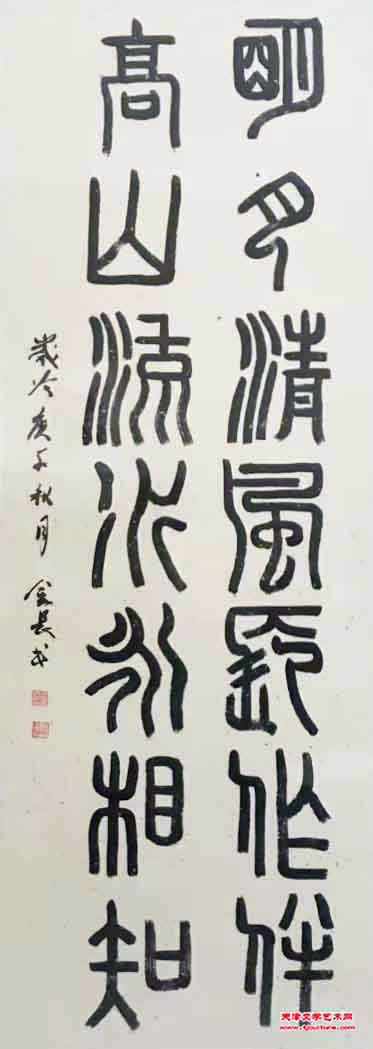 明月清風作伴
高山流水相知
歲次庚子秋月 金長书
天津文学艺术网